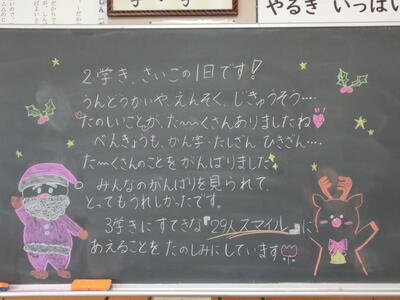 やるき いっぱい
2学き、さいごの1日です!
うんどうかいや、えんそく、じきゅうそう…。
たのしいことが、た〜くさんありましたね
べんきょうも、かん字・たしざん、ひきざん…。
た〜くさんのことをがんばりました。
みんなのがんばりを見られて、
とってもうれしかったです。
3学きにすてきな『29人スマイル』に
あえることを たのしみにしています